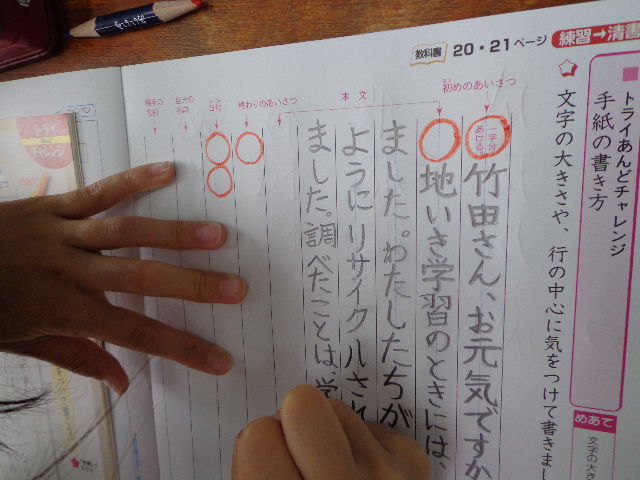 教科書 20・21ページ 練習→清書
トライあんどチャレンジ
手紙の書き方
めあて
文字の大き
文字の大きさや、行の中心に気をつけて書きまし
初めのあいさつ
本文
終わりのあいさつ
日付
自分の名前
相手の名前
一字分あける
竹田さん、お元気ですか
地いき学習のときには、
ました。わたしたちが
ようにリサイクルされ
ました。調べたことは、学
トライ
チャレンジ